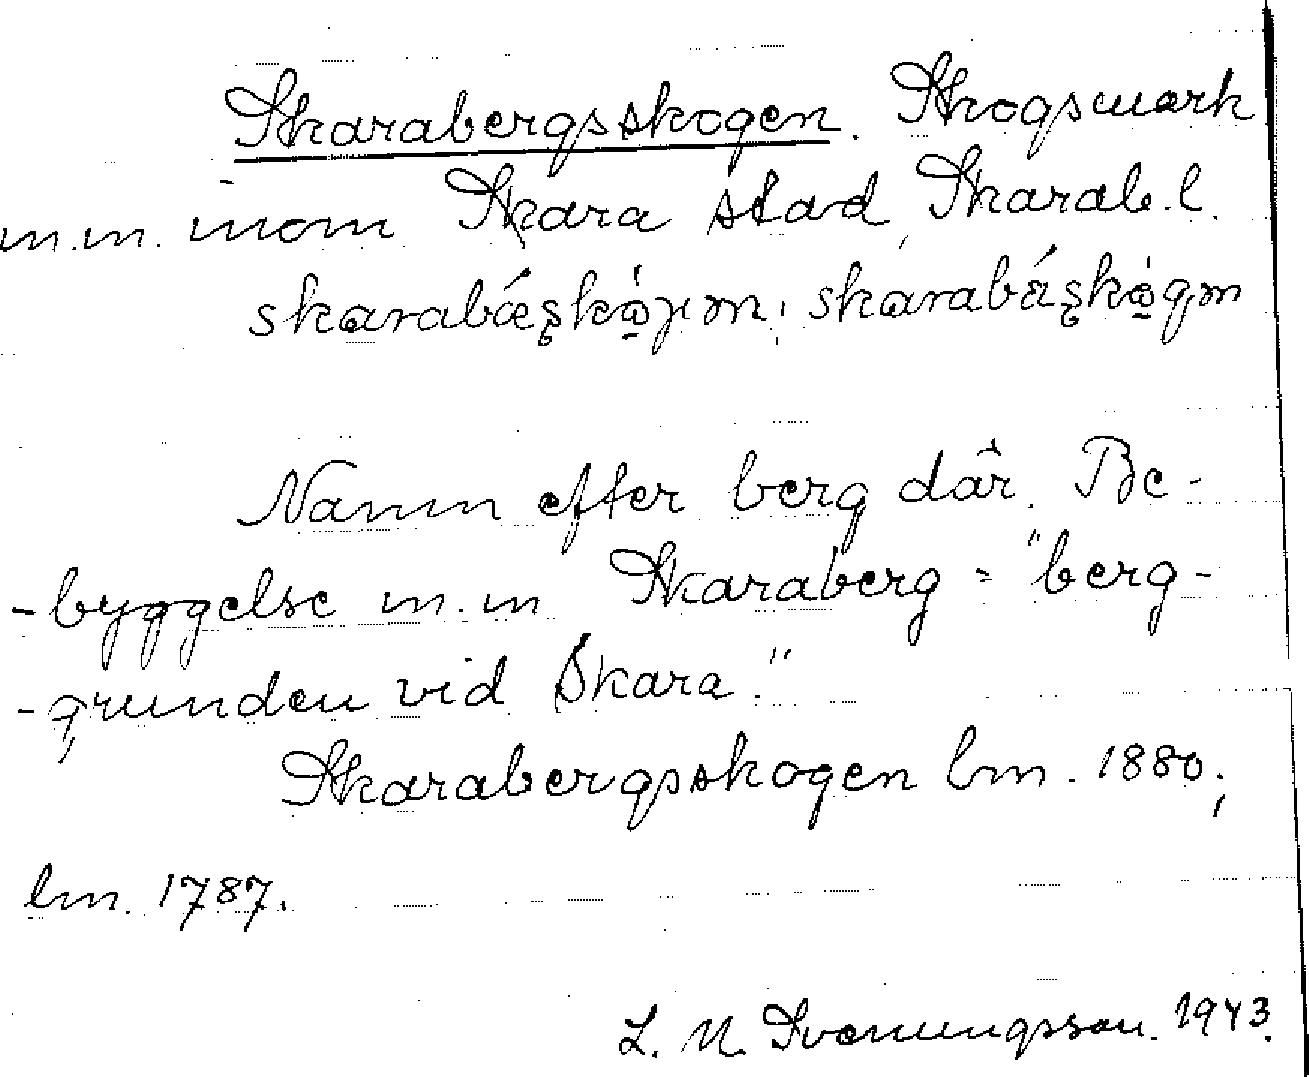 Skarabergsskogen. Skogsmark
m.m. inom Skara stad, Skarab. l.
Namn efter berg där. Be-
-byggelse m.m Skaraberg = "berg-
-grunden vid Skara."
Skarabergsskogen lm. 1880;
lm. 1787.
L. N. Svenungsson. 1943.